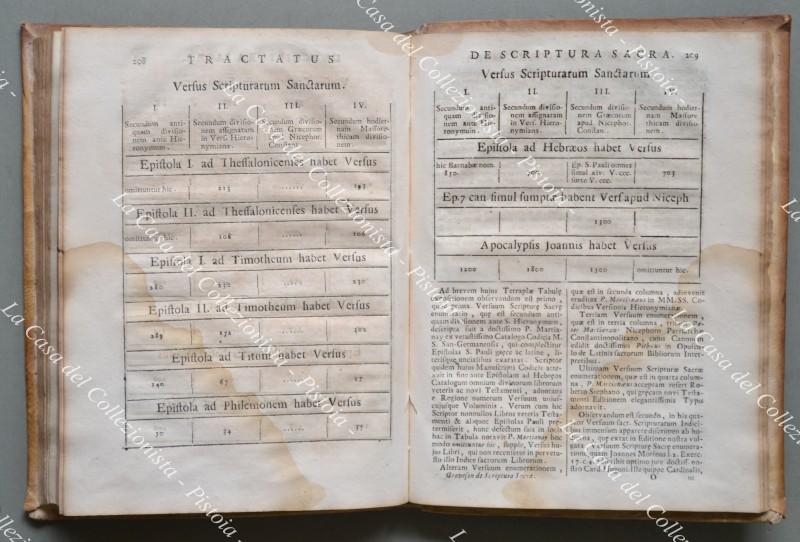 208 TRACTATUS
Versus Scripturarum Sanctarum.
I. II. III. IV.
Secundum anti-
quam divisio-
nem ante Hie-
ronymum.
Secundum divisio-
nem assignatam
in Vers. Hiero-
nymiana.
Secundum divisio-
nem Græcorum
apud Nicephor.
Constan.
Secundum hodier-
nam Massore-
thicam divisio-
nem.
Epistola I. ad Thessalonicenses habet Versus
omittuntur hic. 215 ......
Epistola II. ad Thessalonicenses habet Versus
hic. 108 ...... 106
Epistola I. ad Timotheum habet Versus
230 ...... 230
Epistola II. ad Timotheum habet Versus
289 172
Epistola ad Titum habet Versus
140 67
Epistola ad Philemonem habet Versus
50 34
DE SCRIPTURA SACRA. 209
Versus Scripturarum Sanctarum.
I. II. III. IV.
Secundum anti-
quam divisio-
nem ante Hie-
ronymum.
Secundum divisio-
nem assignatam
in Vers. Hiero-
nymiana.
Secundum divisio-
nem Græcorum
apud Nicephor.
Constan.
Secundum hodier-
nam Massore-
thicam divisio-
nem.
Epistola ad Hebræos habet Versus
hic Barnabæ nom.
850.
Ep. S. Pauli omnes
simul
703
Ep. 7 can simul sumptæ habent Vers apud Niceph
1300
Apocalypsis Joannis habet Versus
1200 1800 1300 omittuntur hic.
Ad brevem huius Terraplæ Tabulæ
expositionem observandum est primo,
quod prima Versuum Scripturæ Sacræ
enumeratio, quæ est secundum anti-
quam divisionem ante S. Hieronymum,
descripta fuit a doctissimo P. Martia-
nay ex vetustissimo Catalogo Codicis M.
S. San-Germanensis, qui complectitur
Epistolas S. Pauli græce ac latine,
exaratas. Scriptor
quidem huius Manuscripti Codicis
in fine ante Epistolam ad Hebræos
Catalogum omnium divinorum librorum
veteris ac novi Testamenti, adnotata
e Regione numerum Versuum unius-
cuiusque Voluminis. Verum cum hic
Scriptor nonnullos Libros veteris Testa-
menti & aliquot Epistolas Pauli præ-
termiserit, hunc defectum suis in locis
hac in Tabula notavit P. Martianay hoc
modo omittuntur hic, supple, Versus hu-
jus Libri, qui non recensentur in pervetu-
sto illo Indice sacrorum Librorum.
Alteram Versuum enumerationem,
Graveson de Scriptura Sacra.
quæ est in secunda columna, adinvenit
eruditus P. Martianæus in MM.SS. Co-
dicibus Versionis Hieronymianæ.
Tertiam Versuum enumerationem,
quæ est in tertia columna,
Martianæus Nicephoro Patriarcha
Constantinopolitano, cuius Canonem
edidit doctissimus Pithœus in Opuscu-
lo de Latinis sacrorum Bibliorum Inter-
pretibus.
Ultimam Versuum Scripturæ Sacræ
enumerationem, quæ est in quarta colum-
na, P. Martianæus acceptam refert Ro-
berto Stephano, qui græcam novi Testa-
menti Editionem elegantissimis Typis
adornavit.
Observandum est secundo, in his qua-
tuor Versuum sacr. Scripturarum Indici-
bus immensum apparere discrimen ab ho-
dierna, quæ extat in Editione nostra vul-
gata Versuum Scripturæ Sacræ enumera-
tione, quam Joannes Morinus l. 2. Exerc.
17. c. 4. tribuit optimo jure doctiss. no-
stro Card. Hugoni. Ille equidem Cardinalis,
O in
La Casa del Collezionista - Pistoia -